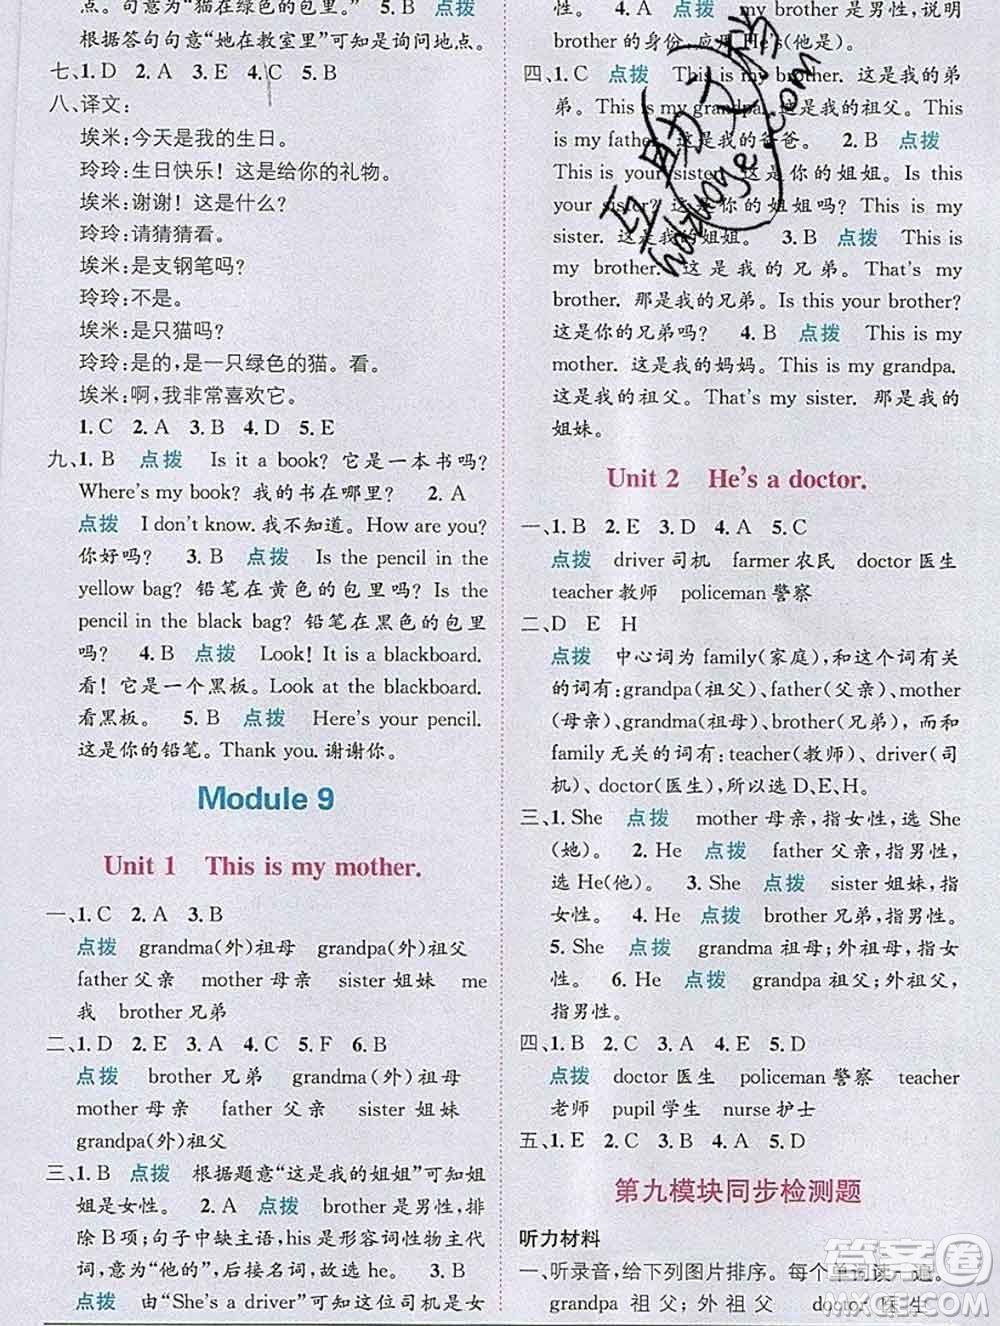 点。句意为“猫在绿色的包里。”　5. B　点拨
根据答句句意“她在教室里”可知是询问地点。
七、1. D　2. A　3. E　4. C　5. B
八、译文：
埃米：今天是我的生日。
玲玲：生日快乐！这是给你的礼物。
埃米：谢谢！这是什么？
玲玲：请猜猜看。
埃米：是支钢笔吗？
玲玲：不是。
埃米：是只猫吗？
玲玲：是的，是一只绿色的猫。看。
埃米：啊，我非常喜欢它。
1. C　2. A　3. B　4. D　5. E
九、1. B　点拨　Is it a book? 它是一本书吗？
Where's my book? 我的书在哪里？　2. A
点拨　I don't know. 我不知道。How are you?
你好吗？　3. B　点拨　Is the pencil in the
yellow bag? 铅笔在黄色的包里吗？ Is the
pencil in the black bag? 铅笔在黑色的包里
吗？　4. B　点拨　Look! It is a blackboard.
看！它是一个黑板。Look at the blackboard.
看黑板。　5. B　点拨　Here's your pencil.
这是你的铅笔。Thank you. 谢谢你。
Module 9
Unit 1　This is my mother.
一、1. C　2. A　3. B
点拨　grandma(外)祖母　grandpa(外)祖父
father 父亲　mother 母亲　sister 姐妹　me
我　brother 兄弟
二、1. D　2. E　3. A　4. C　5. F　6. B
点拨　brother 兄弟　grandma(外)祖母
mother 母亲　father 父亲　sister 姐妹
grandpa(外)祖父
三、1. B　点拨　根据题意“这是我的姐姐”可知姐
姐是女性。　2. A　点拨　his 是他的，排
除 B 项；句子中缺主语，his 是形容词性物主代
词，意为“他的”，后接名词，故选 he。　3. B
点拨　由“She's a driver”可知这位司机是女
性。　4. A　点拨　my brother 是男性，说明
brother 的身份，应用 He's(他是)。
四、1. C　点拨　This is my brother. 这是我的弟
弟。This is my grandpa. 这是我的祖父。This
is my father. 这是我的爸爸。　2. B　点拨
This is your sister. 这是你的姐姐。Is this
your sister? 这是你的姐姐吗？ This is my
sister. 这是我的姐姐。　3. B　点拨　This is
my brother. 这是我的兄弟。That's my
brother. 那是我的兄弟。Is this your brother?
这是你的兄弟吗？　4. B　点拨　That's my
mother. 那是我的妈妈。This is my grandpa.
这是我的祖父。That's my sister. 那是我的
姐妹。
Unit 2　He's a doctor.
一、1. B　2. E　3. D　4. A　5. C
点拨　driver 司机　farmer 农民　doctor 医生
teacher 教师　policeman 警察
二、D　E　H
点拨　中心词为 family(家庭)，和这个词有关
的词有：grandpa(祖父)、father(父亲)、mother
(母亲)、grandma(祖母)、brother(兄弟)，而和
family 无关的词有：teacher(教师)、driver(司
机)、doctor(医生)，所以选 D、E、H。
三、1. She　点拨　mother 母亲，指女性，选 She
(她)。　2. He　点拨　father 父亲，指男性，
选 He(他)。　3. She　点拨　sister 姐妹，指
女性。　4. He　点拨　brother 兄弟，指男性。
5. She　点拨　grandma 祖母；外祖母，指女
性。　6. He　点拨　grandpa 祖父；外祖父，
指男性。
四、1. B　2. A　3. C　4. E　5. D
点拨　doctor 医生　policeman 警察　teacher
老师　pupil 学生　nurse 护士
五、1. E　2. C　3. B　4. A　5. D
第九模块同步检测题
听力材料
一、听录音，给下列图片排序。每个单词读一遍。
grandpa 祖父；外祖父　doctor 医生